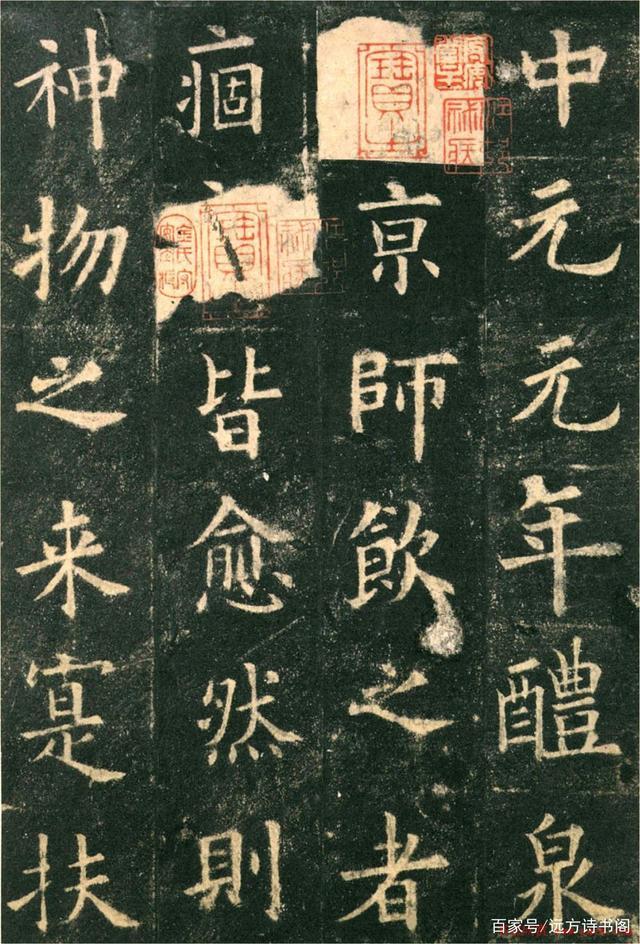 中元元年醴泉
京師飲之者
痼皆愈然則
神物之来寔扶
百家号/远方诗书阁